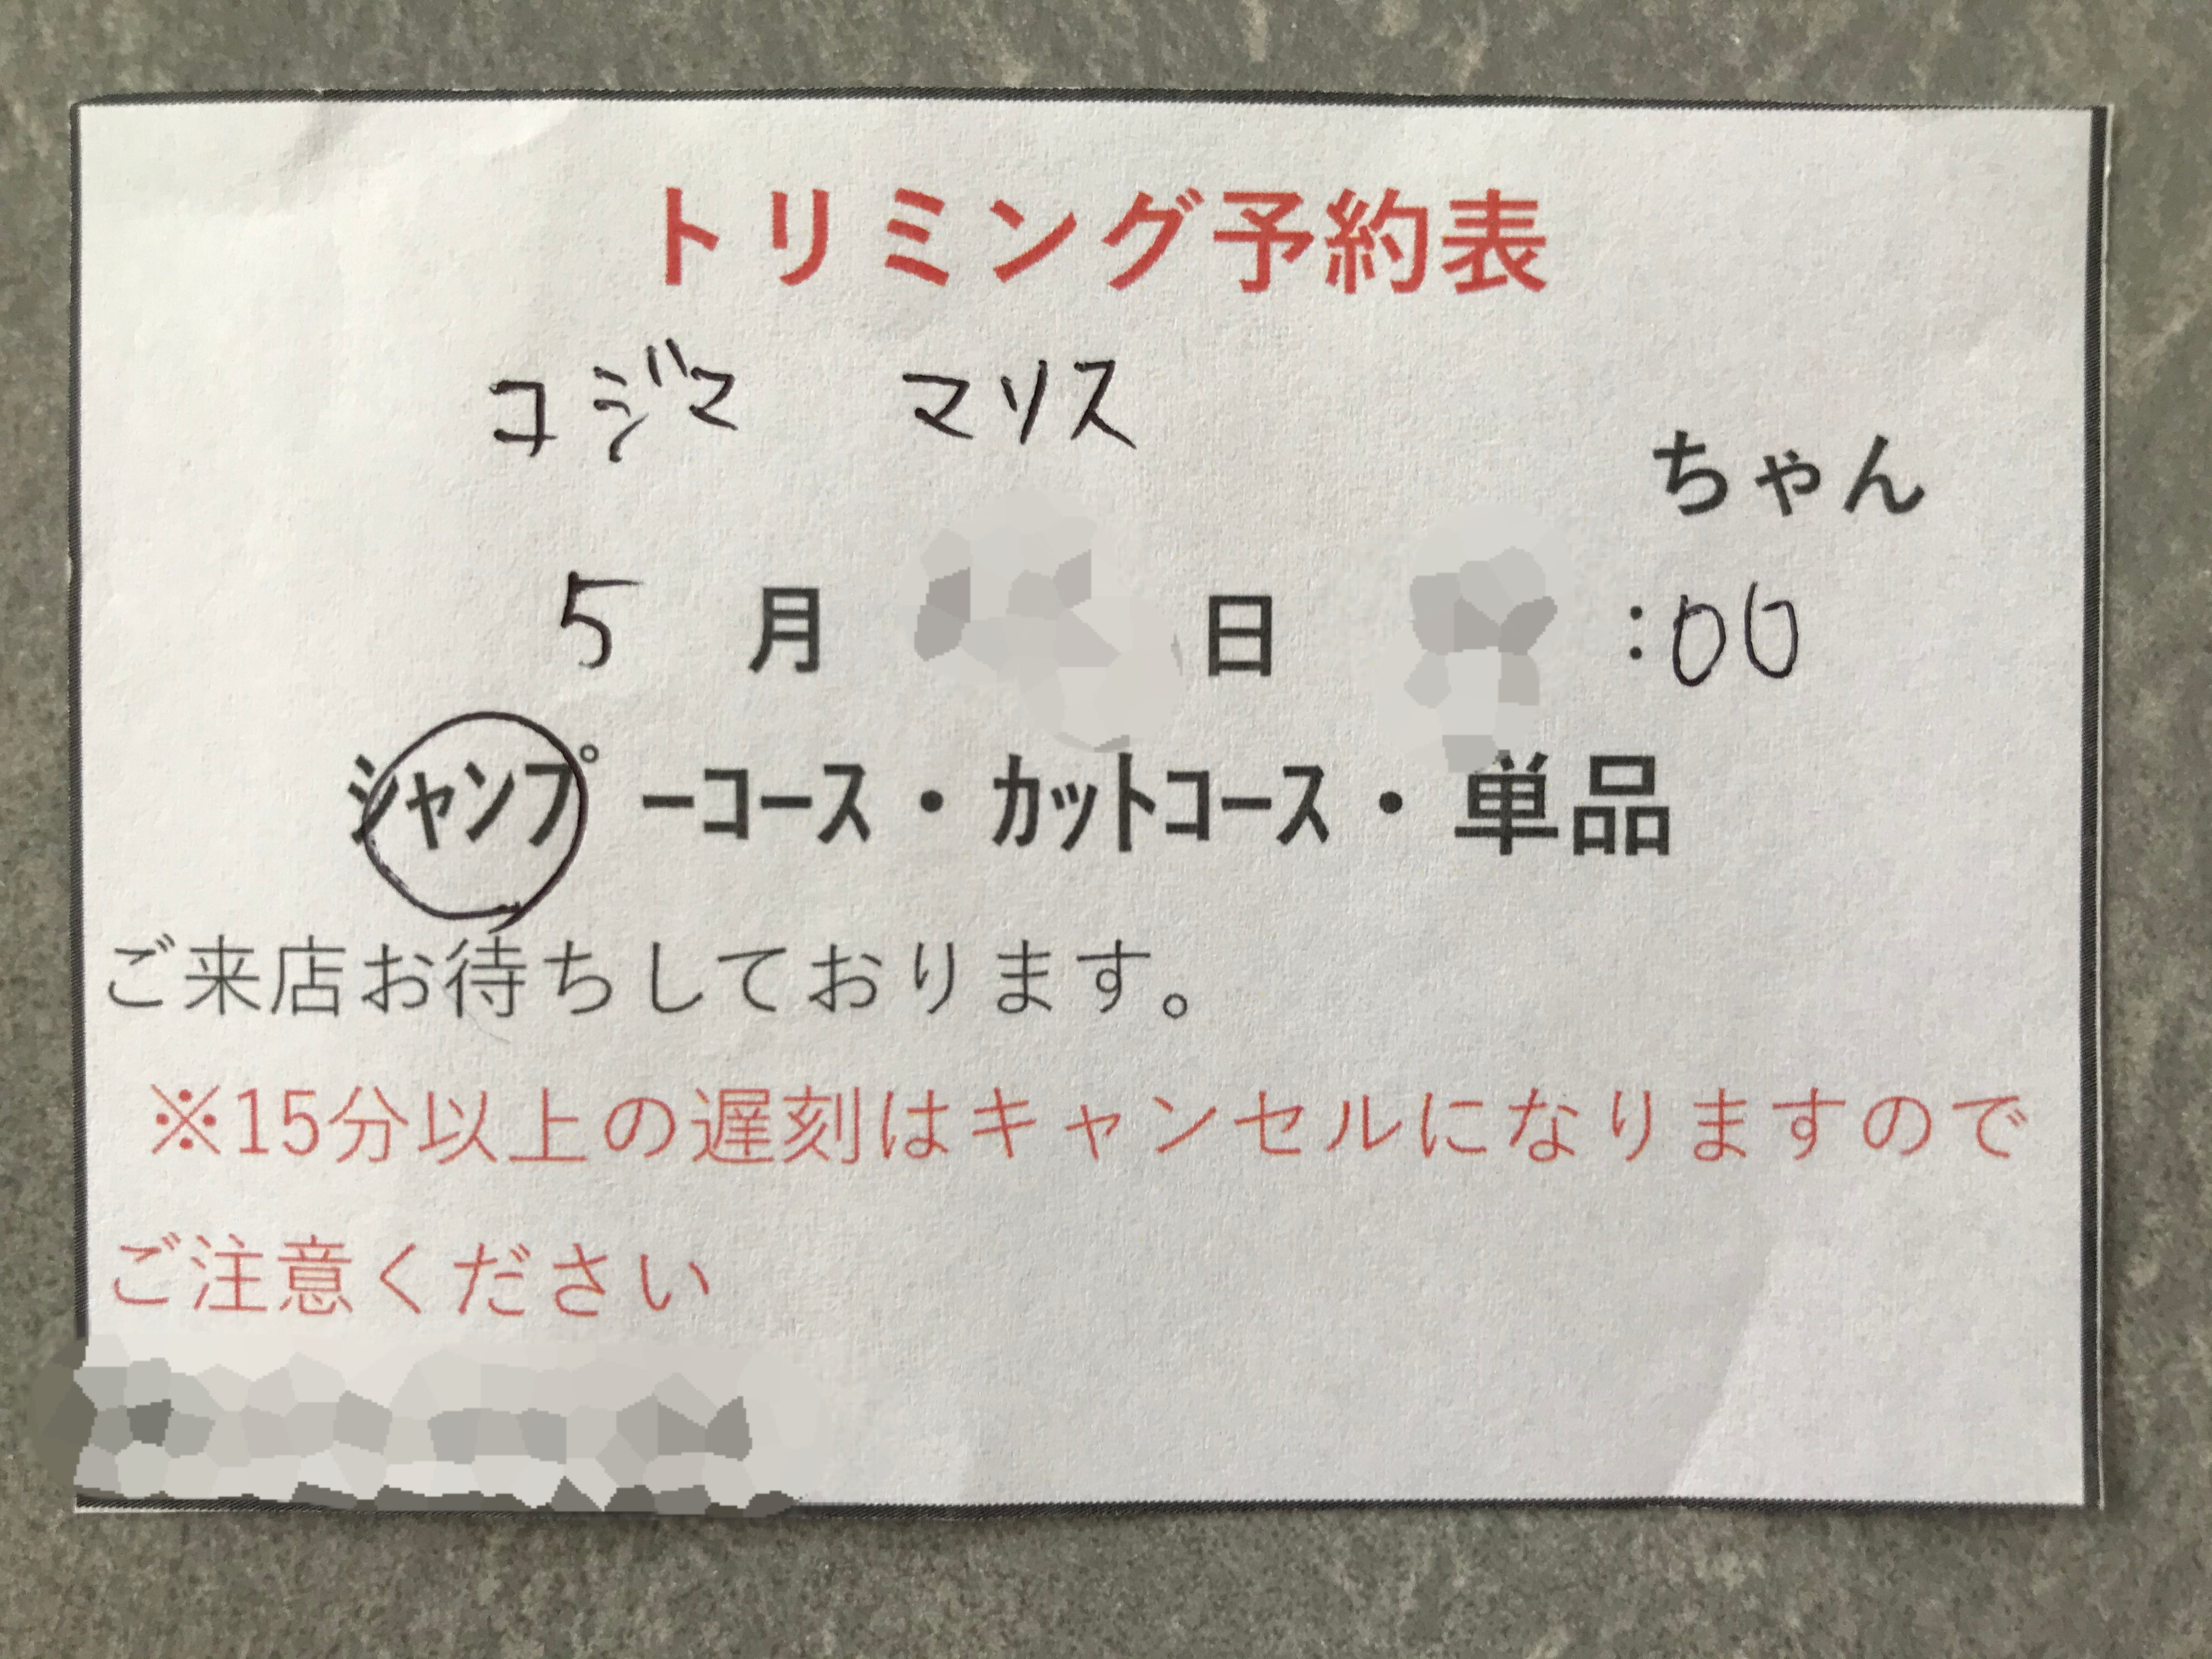 トリミング予約表
コジマ マリス
ちゃん
5 月 日 :00
シャンプーコース・カットコース・単品
ご来店お待ちしております。
※15分以上の遅刻はキャンセルになりますので
ご注意ください